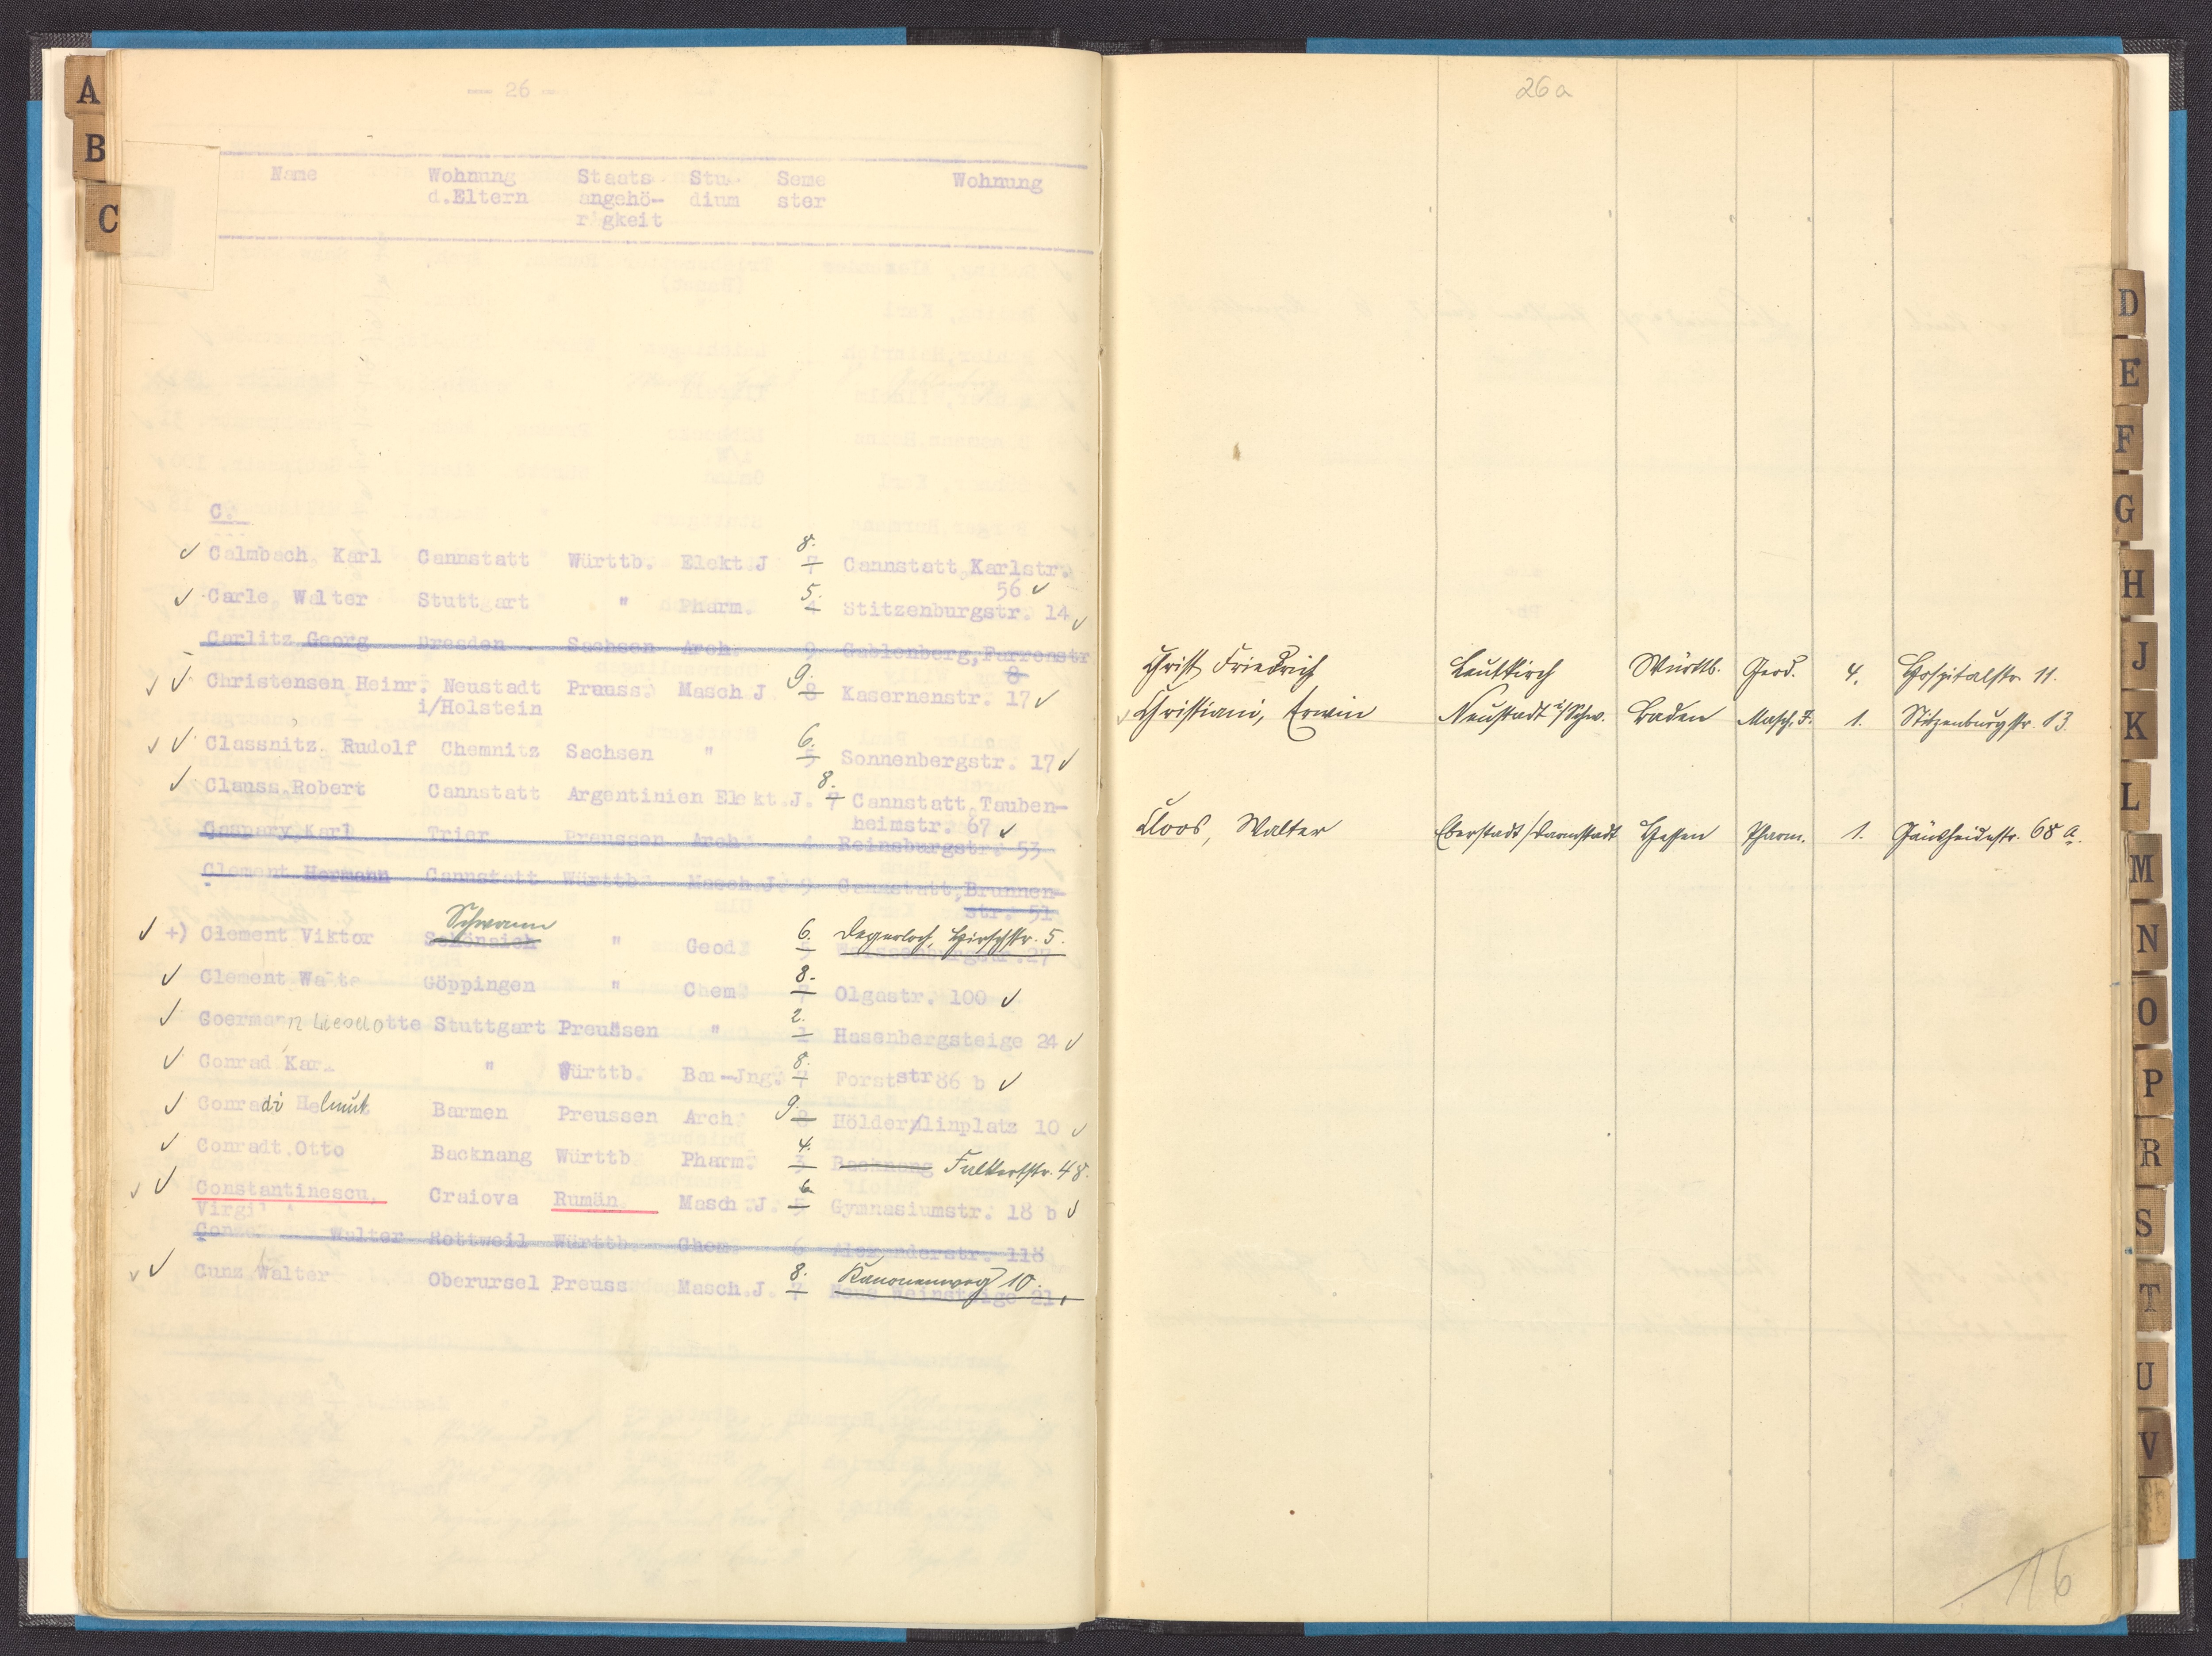 A
B
C
— 26 —
Name Wohnung d.Eltern Staats angehö- rigkeit Stu dium Seme ster Wohnung
C.
✓ Calmbach, Karl Cannstatt Württb. Elekt J 7 8. Cannstatt, Karlstr.
56 ✓
✓ Carle, Walter Stuttgart " Pharm. 4 5. Stitzenburgstr. 14 ✓
Carlitz, Georg Dresden Sachsen Arch. 9 Gablenberg, Farrenstr
8
✓ ✓ Christensen Heinr. Neustadt Preuss. Masch J 8 9. Kasernenstr. 17 ✓
i/Holstein
✓ ✓ Classnitz. Rudolf Chemnitz Sachsen " 5 6. Sonnenbergstr. 17 ✓
✓ Clauss.Robert Cannstatt Argentinien Elekt.J. 7 8. Cannstatt, Tauben-
heimstr. 67 ✓
Caspary, Karl Trier Preussen Arch. 4 Reinsburgstr. 53
Clement Hermann Cannstatt Württb Masch J. 9 Cannstatt, Brunnen-
str. 51
✓ +) Clement Viktor Schönaich Schwann " Geod. 5 6. Degerloch, Hirschstr. 5.
27
✓ Clement Walte Göppingen " Chem. 7 8. Olgastr. 100 ✓
✓ Coermann Lieselotte Stuttgart Preussen " 1 2. Hasenbergsteige 24 ✓
✓ Conrad Kar. " Württb. Bau-Jng. 7 8. Forststr 86 b ✓
✓ Conradi Helmut Barmen Preussen Arch. 8 9. Hölderlinplatz 10 ✓
✓ Conradt.Otto Backnang Württb Pharm. 3 4. Backnang Falkertstr. 48.
✓ ✓ Constantinescu, Craiova Rumän. Masch.J. 5 6 Gymnasiumstr. 18 b ✓
Virgil
Walter Rottweil Württb. Chem. 6 Alexanderstr. 118
✓ ✓ Cunz Walter Oberursel Preuss Masch.J. 7 8. Kanonenweg 10.
Neue Weinsteige 21.
26a
Christ Friedrich Leutkirch Württb. Geod. 4. Hospitalstr. 11.
✓ Christiani, Erwin Neustadt i/Schw. Baden Masch. J. 1. Stitzenburgstr. 13.
Cloos, Walter Eberstadt/Darmstadt Hessen Pharm. 1. Gänsheidestr. 68 a.
16
D
E
F
G
H
J
K
L
M
N
O
P
R
S
T
U
V